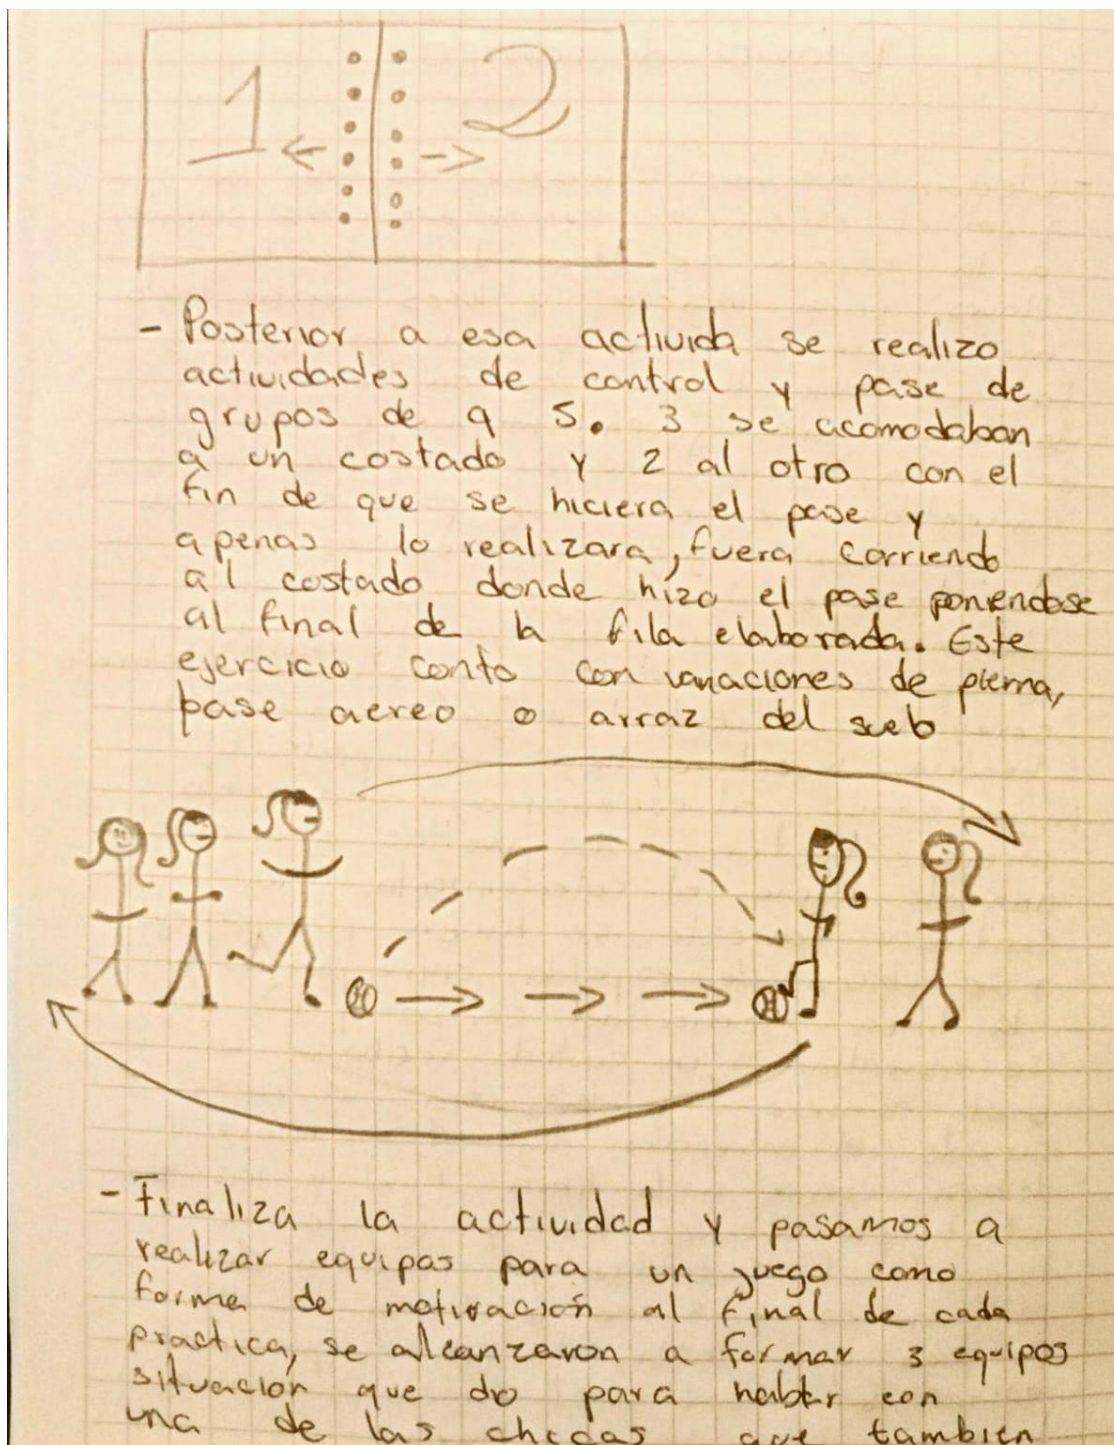 1 2
- Posterior a esa activida se realizo
actividades de control y pase de
grupos de a 5. 3 se acomodaban
a un costado y 2 al otro con el
fin de que se hiciera el pase y
apenas lo realizara, fuera corriendo
al costado donde hizo el pase poniendose
al final de la fila elaborada. Este
ejercicio conto con variaciones de pierna,
pase aereo o arraz del suelo
- Finaliza la actividad y pasamos a
realizar equipos para un juego como
forma de motivación al final de cada
practica, se alcanzaron a formar 3 equipos
situación que dio para hablar con
una de las chicas que también